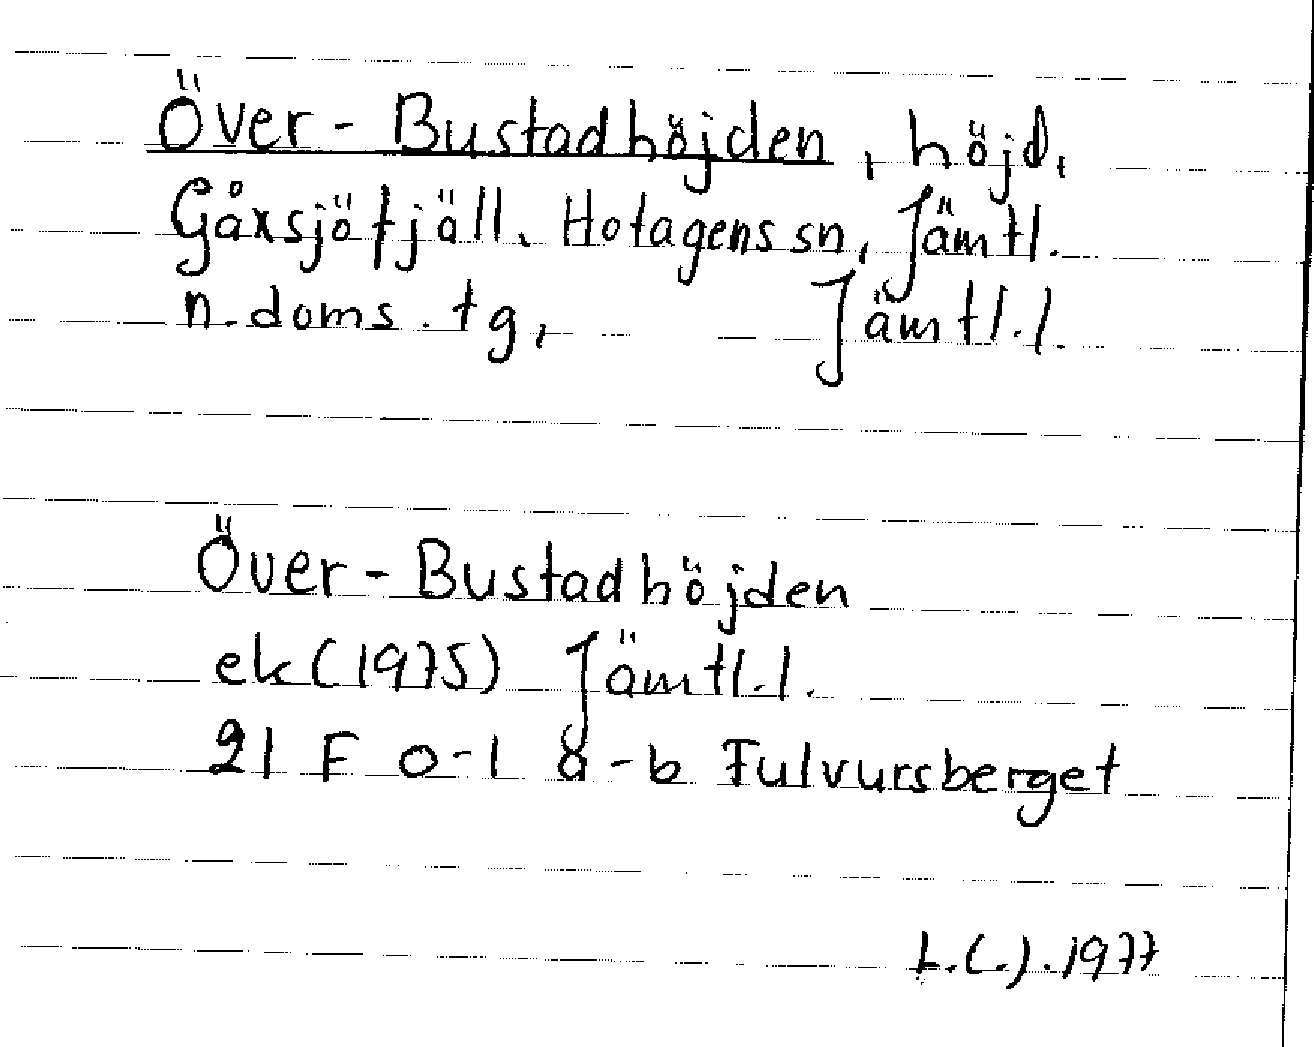 Över-Bustadhöjden, höjd,
Gåxsjöfjäll, Hotagens sn, Jämtl.
n. doms. tg, Jämtl.l.
Över-Bustadhöjden
ek(1975) Jämtl.l.
21 F 0-1 a-b Fulvursberget
L.C.J. 1977